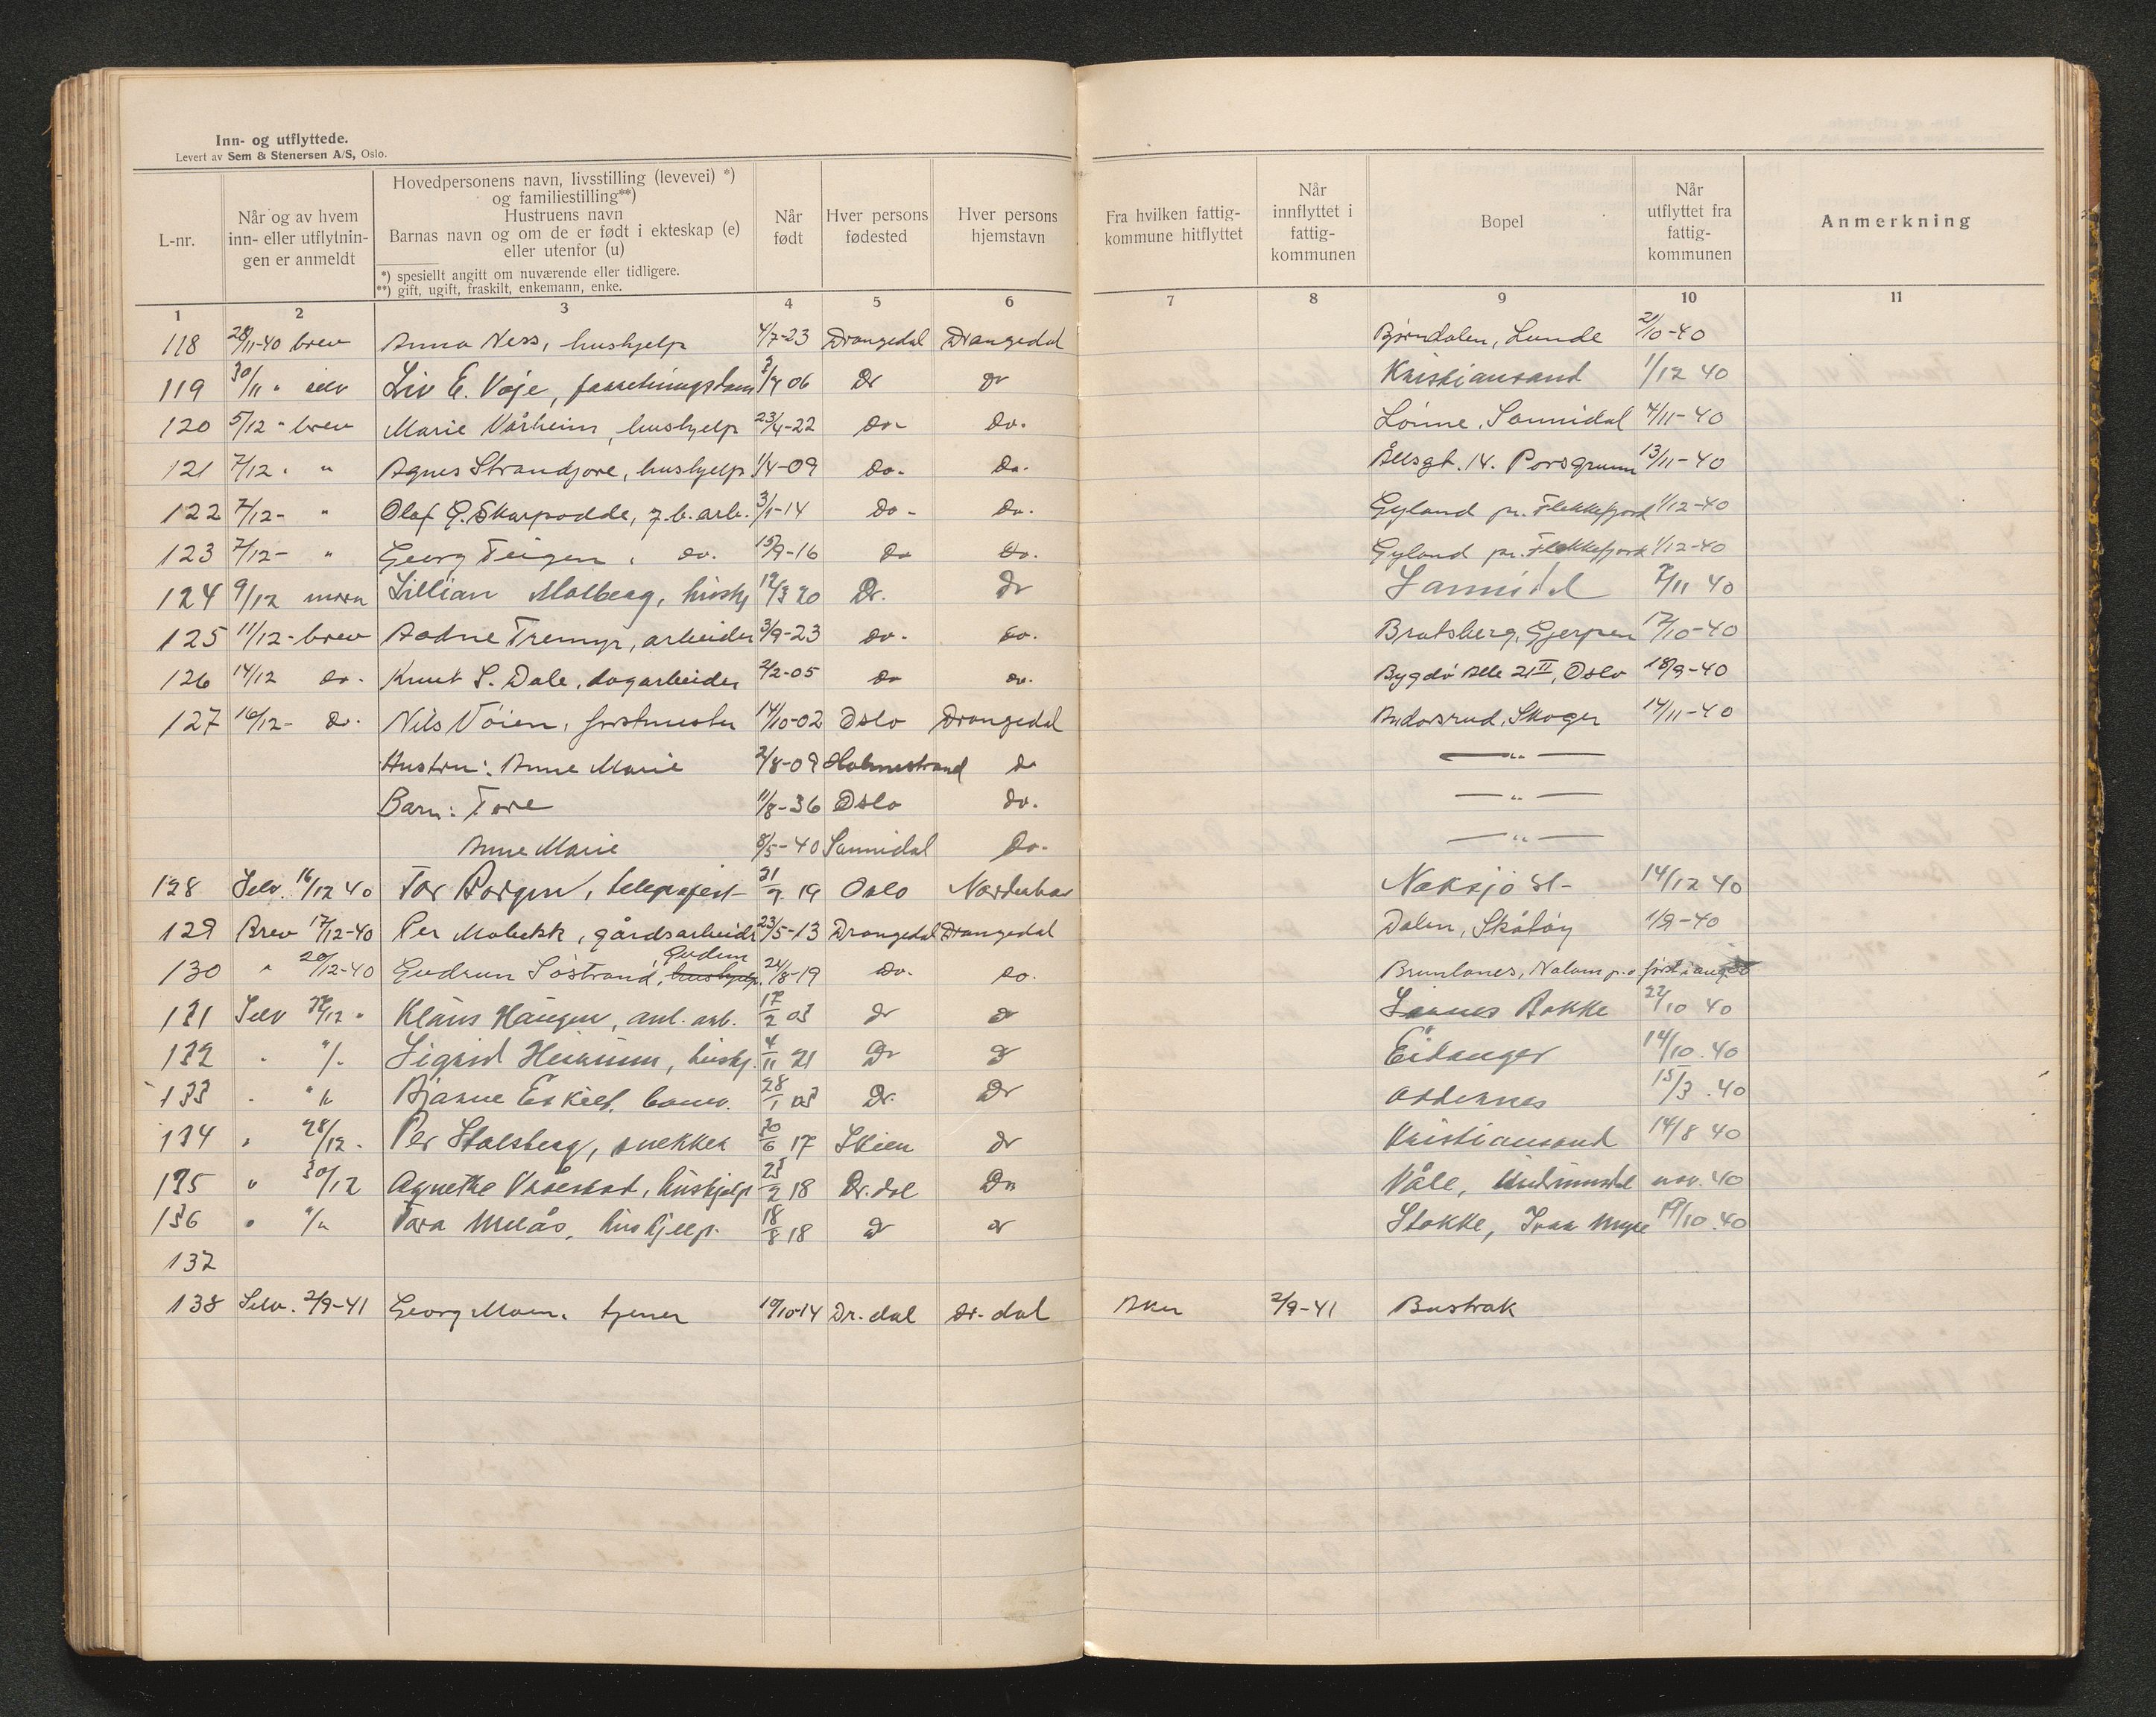 Inn- og utflyttede.
Levert av Sem & Stenersen A/S, Oslo.
L-nr.
Når og av hvem
inn- eller utflytnin-
gen er anmeldt
Hovedpersonens navn, livsstilling (levevei) *)
og familiestilling**)
Hustruens navn
Barnas navn og om de er født i ekteskap (e)
eller utenfor (u)
*) spesiellt angitt om nuværende eller tidligere.
**) gift, ugift, fraskilt, enkemann, enke.
Når
født
Hver persons
fødested
Hver persons
hjemstavn
Fra hvilken fattig-
kommune hitflyttet
Når
innflyttet i
fattig-
kommunen
Bopel
Når
utflyttet fra
fattig-
kommunen
Anmerkning
1 2 3 4 5 6 7 8 9 10 11
118 28/11-40 brev Anna Ness, hushjelp 4/7-23 Drangedal Drangedal Bjørndalen, Lunde 2/10-40
119 30/11 " selv Liv E. Voje, 06 Dr dr Kristiansand 1/12 40
120 5/12 - brev Marie Vårheim, hushjelp 23/4-22 do- do. Lønne, Sannidal 4/11-40
121 7/12 " " Agnes Strandjore, hushjelp 1/4-09 do- do. 14. Porsgrunn 13/11-40
122 7/12- " Olaf G. Skarpodde, j.b. arb. 3/1-14 do- do. Gyland pr. Flekkefjord 1/12-40
123 7/12- " Georg Teigen, do. 15/9-16 do do. Gyland pr. Flekkefjord 1/12-40
124 9/12 Lillian Molberg, hushj 12/3 20 Dr. dr Sannidal 7/11 40
125 11/12- brev Aadne Tremyr, arbeider 3/9-23 do- do. Bratsberg, Gjerpen 17/10-40
126 14/12 do- Knut S. Dale, dagarbeider 2/2-05 do do. Bygdö Alle 21 II, Oslo 18/9-40
127 16/12- do. Nils Vöien, forstmester 14/10-02 Oslo Drangedal Skoger 14/11-40
Hustru: Anne Marie 2/8-09 Holmestrand do — " —
Barn: Tore 11/8-36 Oslo do. — " —
Anne Marie 8/5-40 Sannidal do- — " —
128 Selv. 16/12 40 Tor Borgen, telegrafist 21/7 19 Oslo Nakksjö st- 14/12 40
129 Brev 17/12-40 Per Molukk, gårdsarbeidr 23/5-13 Drangedal Drangedal Dalen, Skåtøy 1/9-40
130 " 20/12-40 Gudrun Söstrand, hushjelp. 24/8-19 do. do. Brunlanes,
131 Selv /12 " Klaus Haugen, anl. arb. 17/2 03 dr dr Bakke 22/10 40
132 " "/- Sigrid hushj. 4/11 21 Dr dr Eidanger 14/10.40
133 " "/" Bjarne Eskil. 28/1 03 Dr. Dr Oddernes 15/3.40
134 " 28/12 - Per Stalsberg, snekker 20/6 17 Skien dr Kristiansand 14/8 40
135 " 30/12 Agnethe hushjelp 23/2 18 Dr.dal Dr Våle, nov. 40
136 " "/" Tora Melås, hushjelp. 18/8 18 dr dr Stokke, Ivar Myre 19/10.40
137
138 Selv. 2/9-41 Georg Moen, tjener 19/10-14 Dr. dal Dr. dal Aker 2/9-41 Bustrak